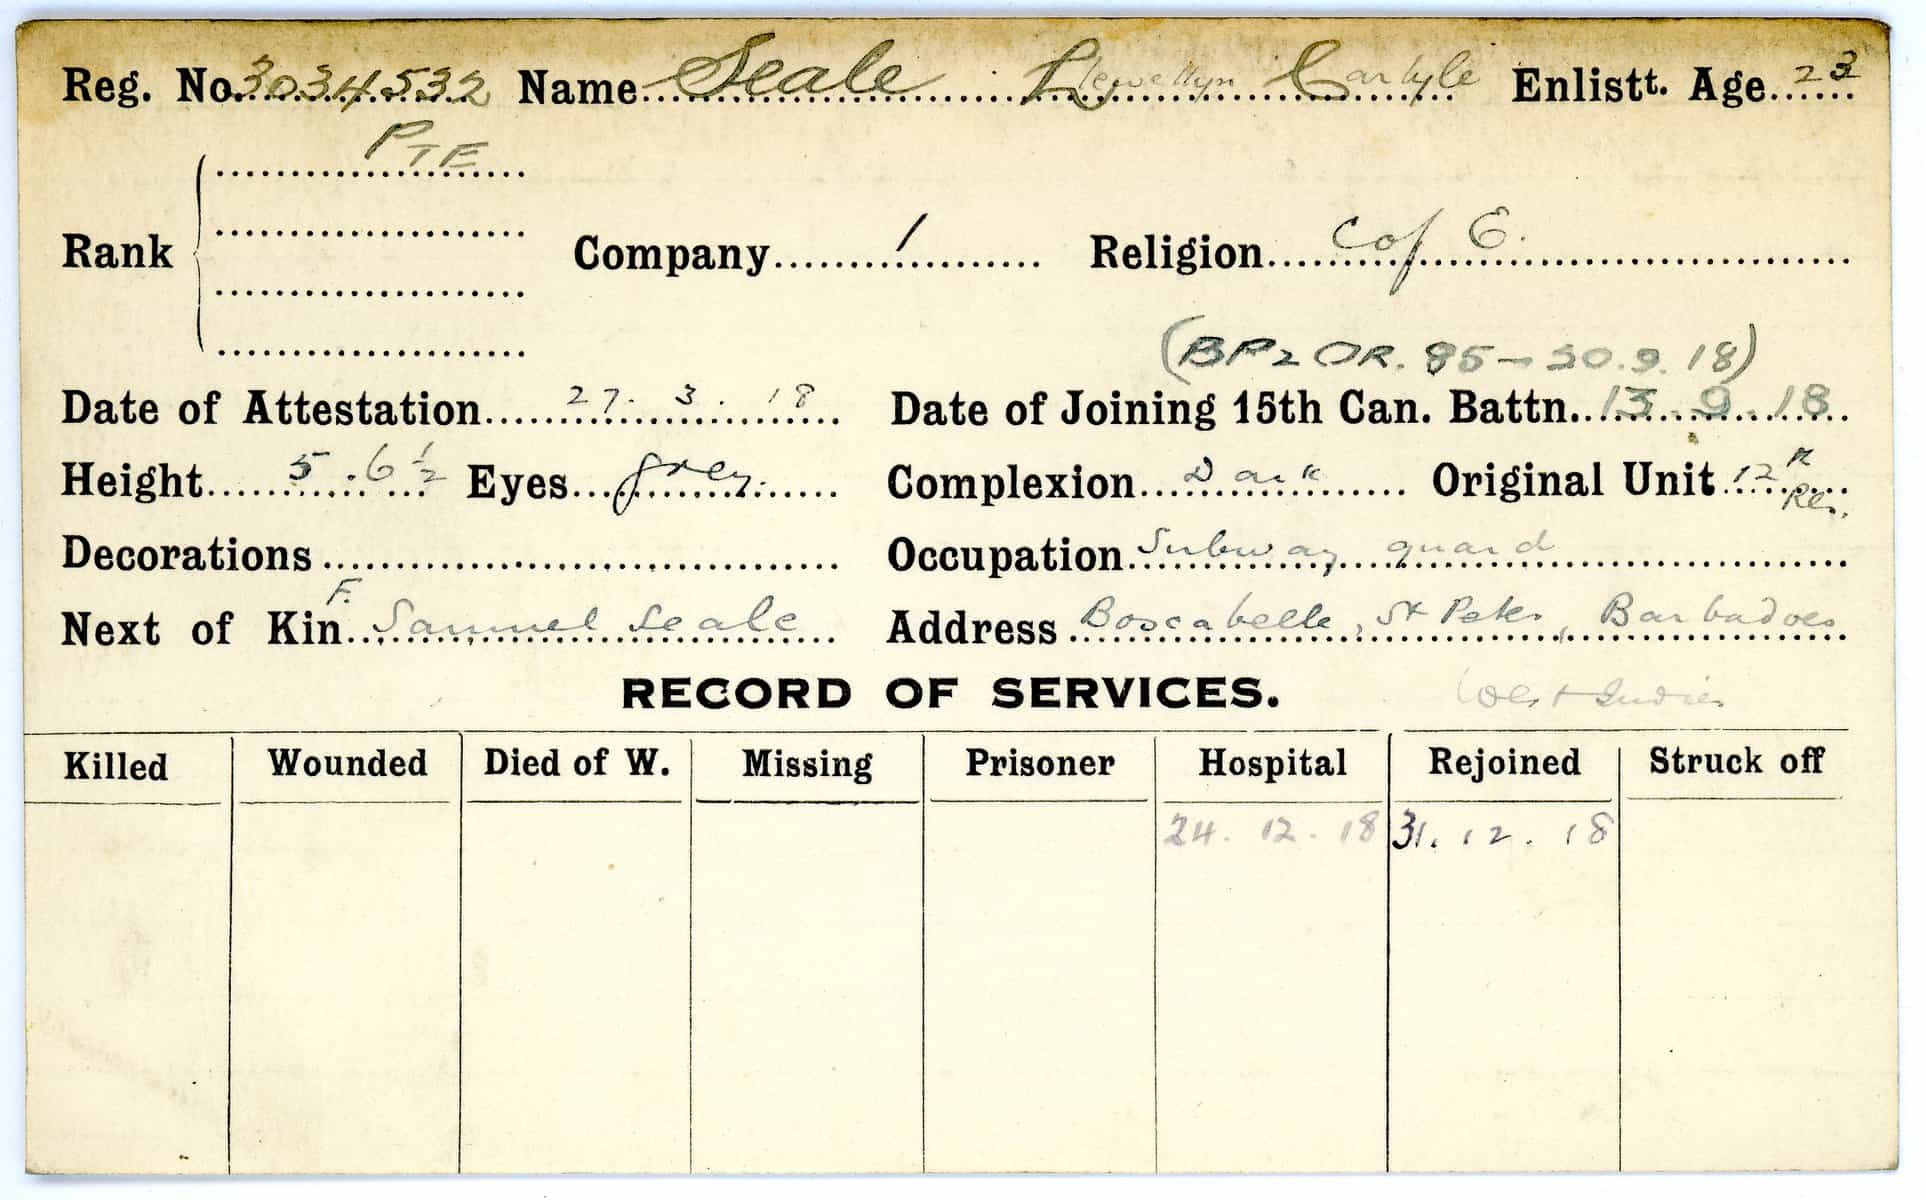 Reg. No. 3034532 Name Seale Llewellyn Carlyle Enlistt. Age 23
PTE
Rank Company 1 Religion C of E.
(BP2 OR. 85 - 30.9.18)
Date of Attestation 27. 3. 18 Date of Joining 15th Can. Battn. 13.9.18
Height 5.6½ Eyes grey. Complexion Dark Original Unit 12th Res.
Decorations Occupation Subway guard
Next of Kin F. Samuel Seale Address Boscabelle, St Peter, Barbadoes
RECORD OF SERVICES. West Indies
Killed Wounded Died of W. Missing Prisoner Hospital Rejoined Struck off
24. 12. 18 31. 12. 18